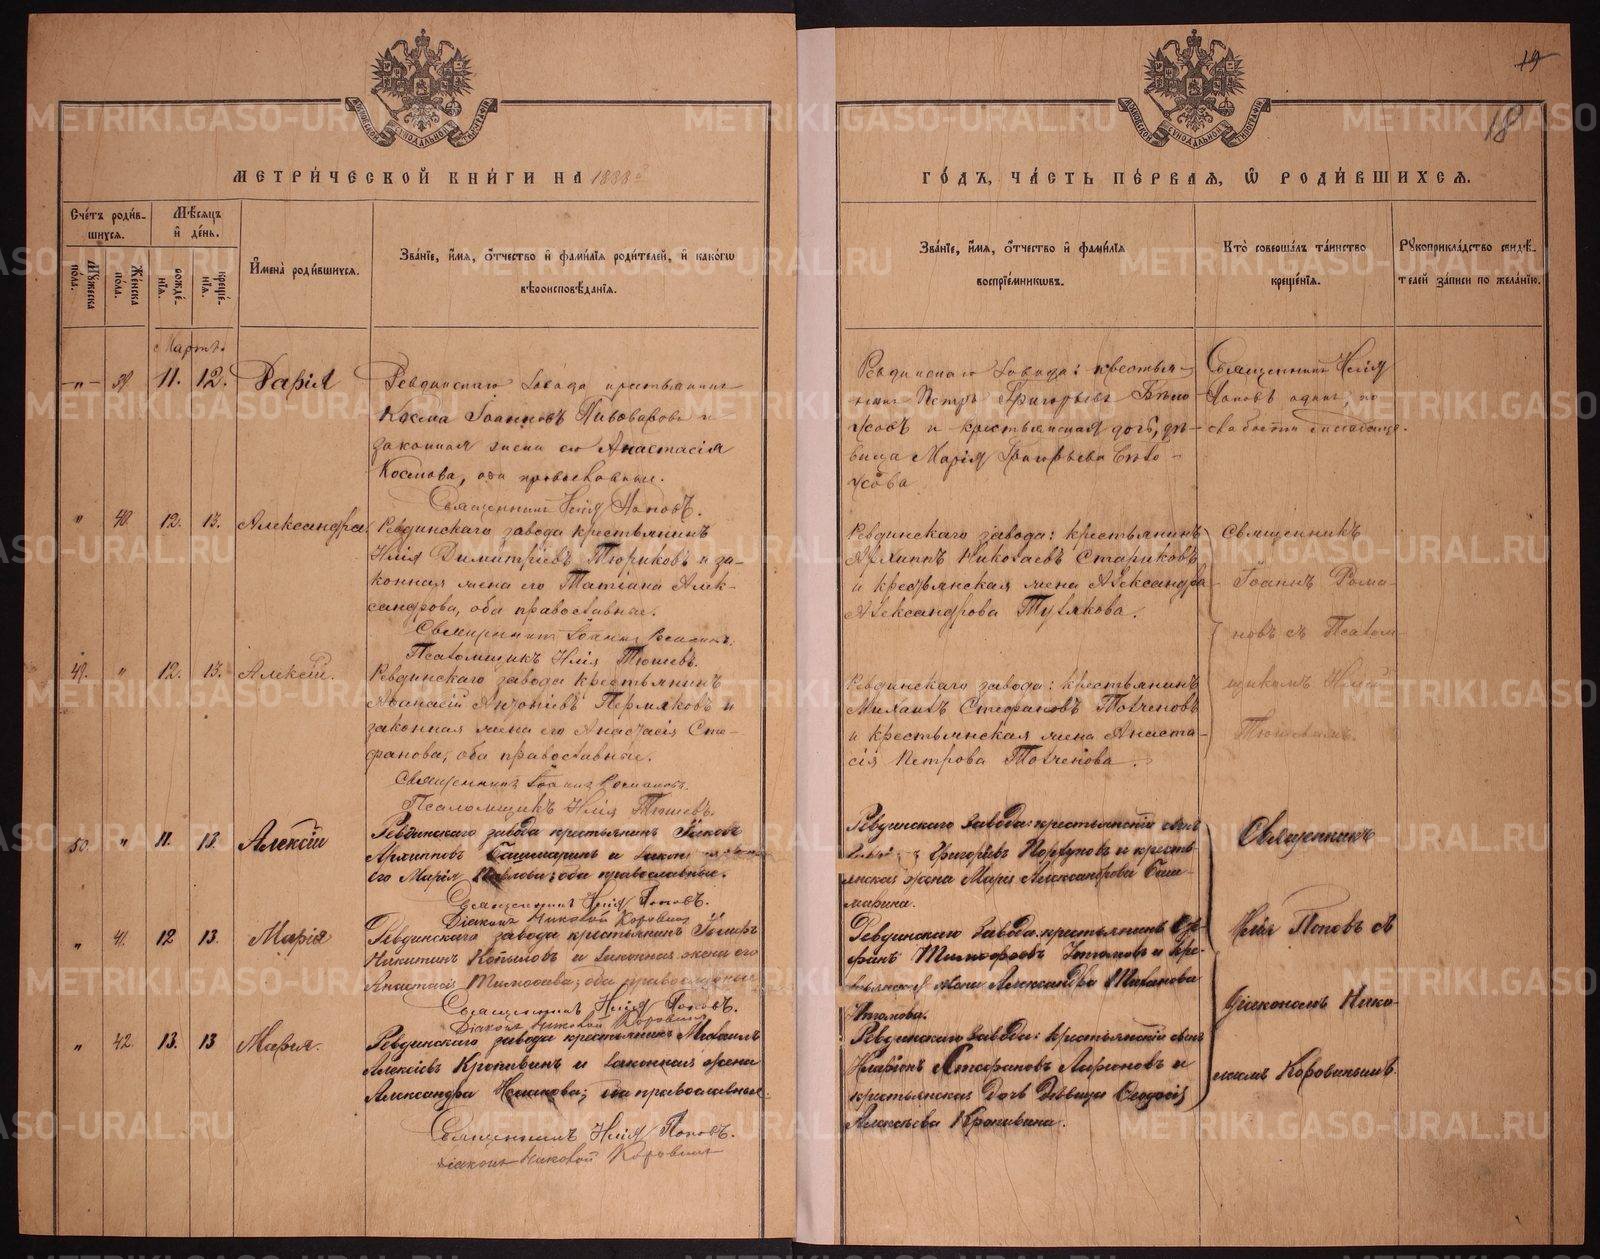 19
18
МЕТРИ́ЧЕСКОЙ КНИ́ГИ НА 1888
ГО́ДЪ, ЧА́СТЬ ПЕ́РВАЯ, Ѡ РОДИ́ВШИХСЯ.
Сче́тъ роди́в-
шихся.
Мѣ́сяцъ
и де́нь.
Му́жеска по́ла.
Же́нска пола.
рожде́-
нїя.
креще́-
нїя.
И҆мена̀ роди́вшихся.
Зва́нїе, и҆́мя, ѻ҆́тчество и҆ фами́лїя роди́телей, и҆ како́гѡ
вѣроисповѣ́данїя.
Зва́нїе, и҆́мя, ѻ҆́тчество и҆ фами́лїя
воспрїе́мниковъ.
Кто̀ соверша́лъ та́инство
креще́нїя.
Рукоприкла́дство свидѣ́-
телей за́писи по жела́нїю.
Мартъ.
" 39 11. 12. Дарія
Ревдинскаго завода крестьянинъ
Косма Іоанновъ Пивоваровъ и
законная жена его Анастасія
Космова, оба православные.
Священникъ Илія Поповъ.
Ревдинскаго завода: крестья-
нинъ Петръ Григорьевъ Бѣло-
усовъ и крестьянская дочь, дѣ-
вица Марія Григорьева Бѣло-
усова
Священникъ Илія
Поповъ одинъ, по
" 40. 12. 13. Александра.
Ревдинскаго завода крестьянинъ
Илія Димитріевъ Тюриковъ и за-
конная жена его Татіана Алек-
сандрова, оба православные.
Священникъ Іоаннъ Романовъ.
Псаломщикъ Илія Тюшевъ.
Ревдинскаго завода: крестьянинъ
Архиппъ Николаевъ Стариковъ
и крестьянская жена Александра
Александрова Тулякова.
Священникъ
Іоаннъ Рома-
новъ съ Псалом-
щикомъ Иліей
Тюшевымъ.
49. " 12. 13. Алексій.
Ревдинскаго завода крестьянинъ
Аѳанасій Антоніевъ Пермяковъ и
законная жена его Анастасія Сте-
фанова, оба православные.
Священникъ Іоаннъ Романовъ.
Псаломщикъ Илія Тюшевъ.
Ревдинскаго завода: крестьянинъ
Михаилъ Стефановъ Толченовъ
и крестьянская жена Анаста-
сія Петрова Толченова.
50. " 11. 13. Алексій
Ревдинскаго завода крестьянинъ Іаковъ
Архипповъ Башмаринъ и законная жена
его Марія Павлова; оба православные.
Священникъ Илія Поповъ.
Діаконъ Николай Коровинъ
Ревдинскаго завода: крестьянскій сынъ
Григорьевъ Коркуновъ и кресть-
янская жена Марія Александрова Баш-
марина.
Священникъ
Илія Поповъ съ
Діакономъ Нико-
лаемъ Коровинымъ.
" 41. 12 13. Марія
Ревдинскаго завода крестьянинъ Іосифъ
Никитинъ Копыловъ и законная жена его
Анастасія Тимоѳеева; оба православные
Священникъ Илія Поповъ.
Діаконъ Николай Коровинъ
Ревдинскаго завода: крестьянинъ
Тимофеевъ
жена Александра
" 42. 13. 13 Марія.
Ревдинскаго завода крестьянинъ Михаилъ
Алексіевъ Кропивинъ и законная жена
Александра Исаакова; оба православные.
Священникъ Илія Поповъ.
Діаконъ Николай Коровинъ
Ревдинскаго завода: крестьянскій сынъ
Иларіонъ Стефановъ Ларіоновъ и
крестьянская дочь дѣвица Ѳеодосія
Алексѣева Кропивина.
METRIKI.GASO-URAL.RU